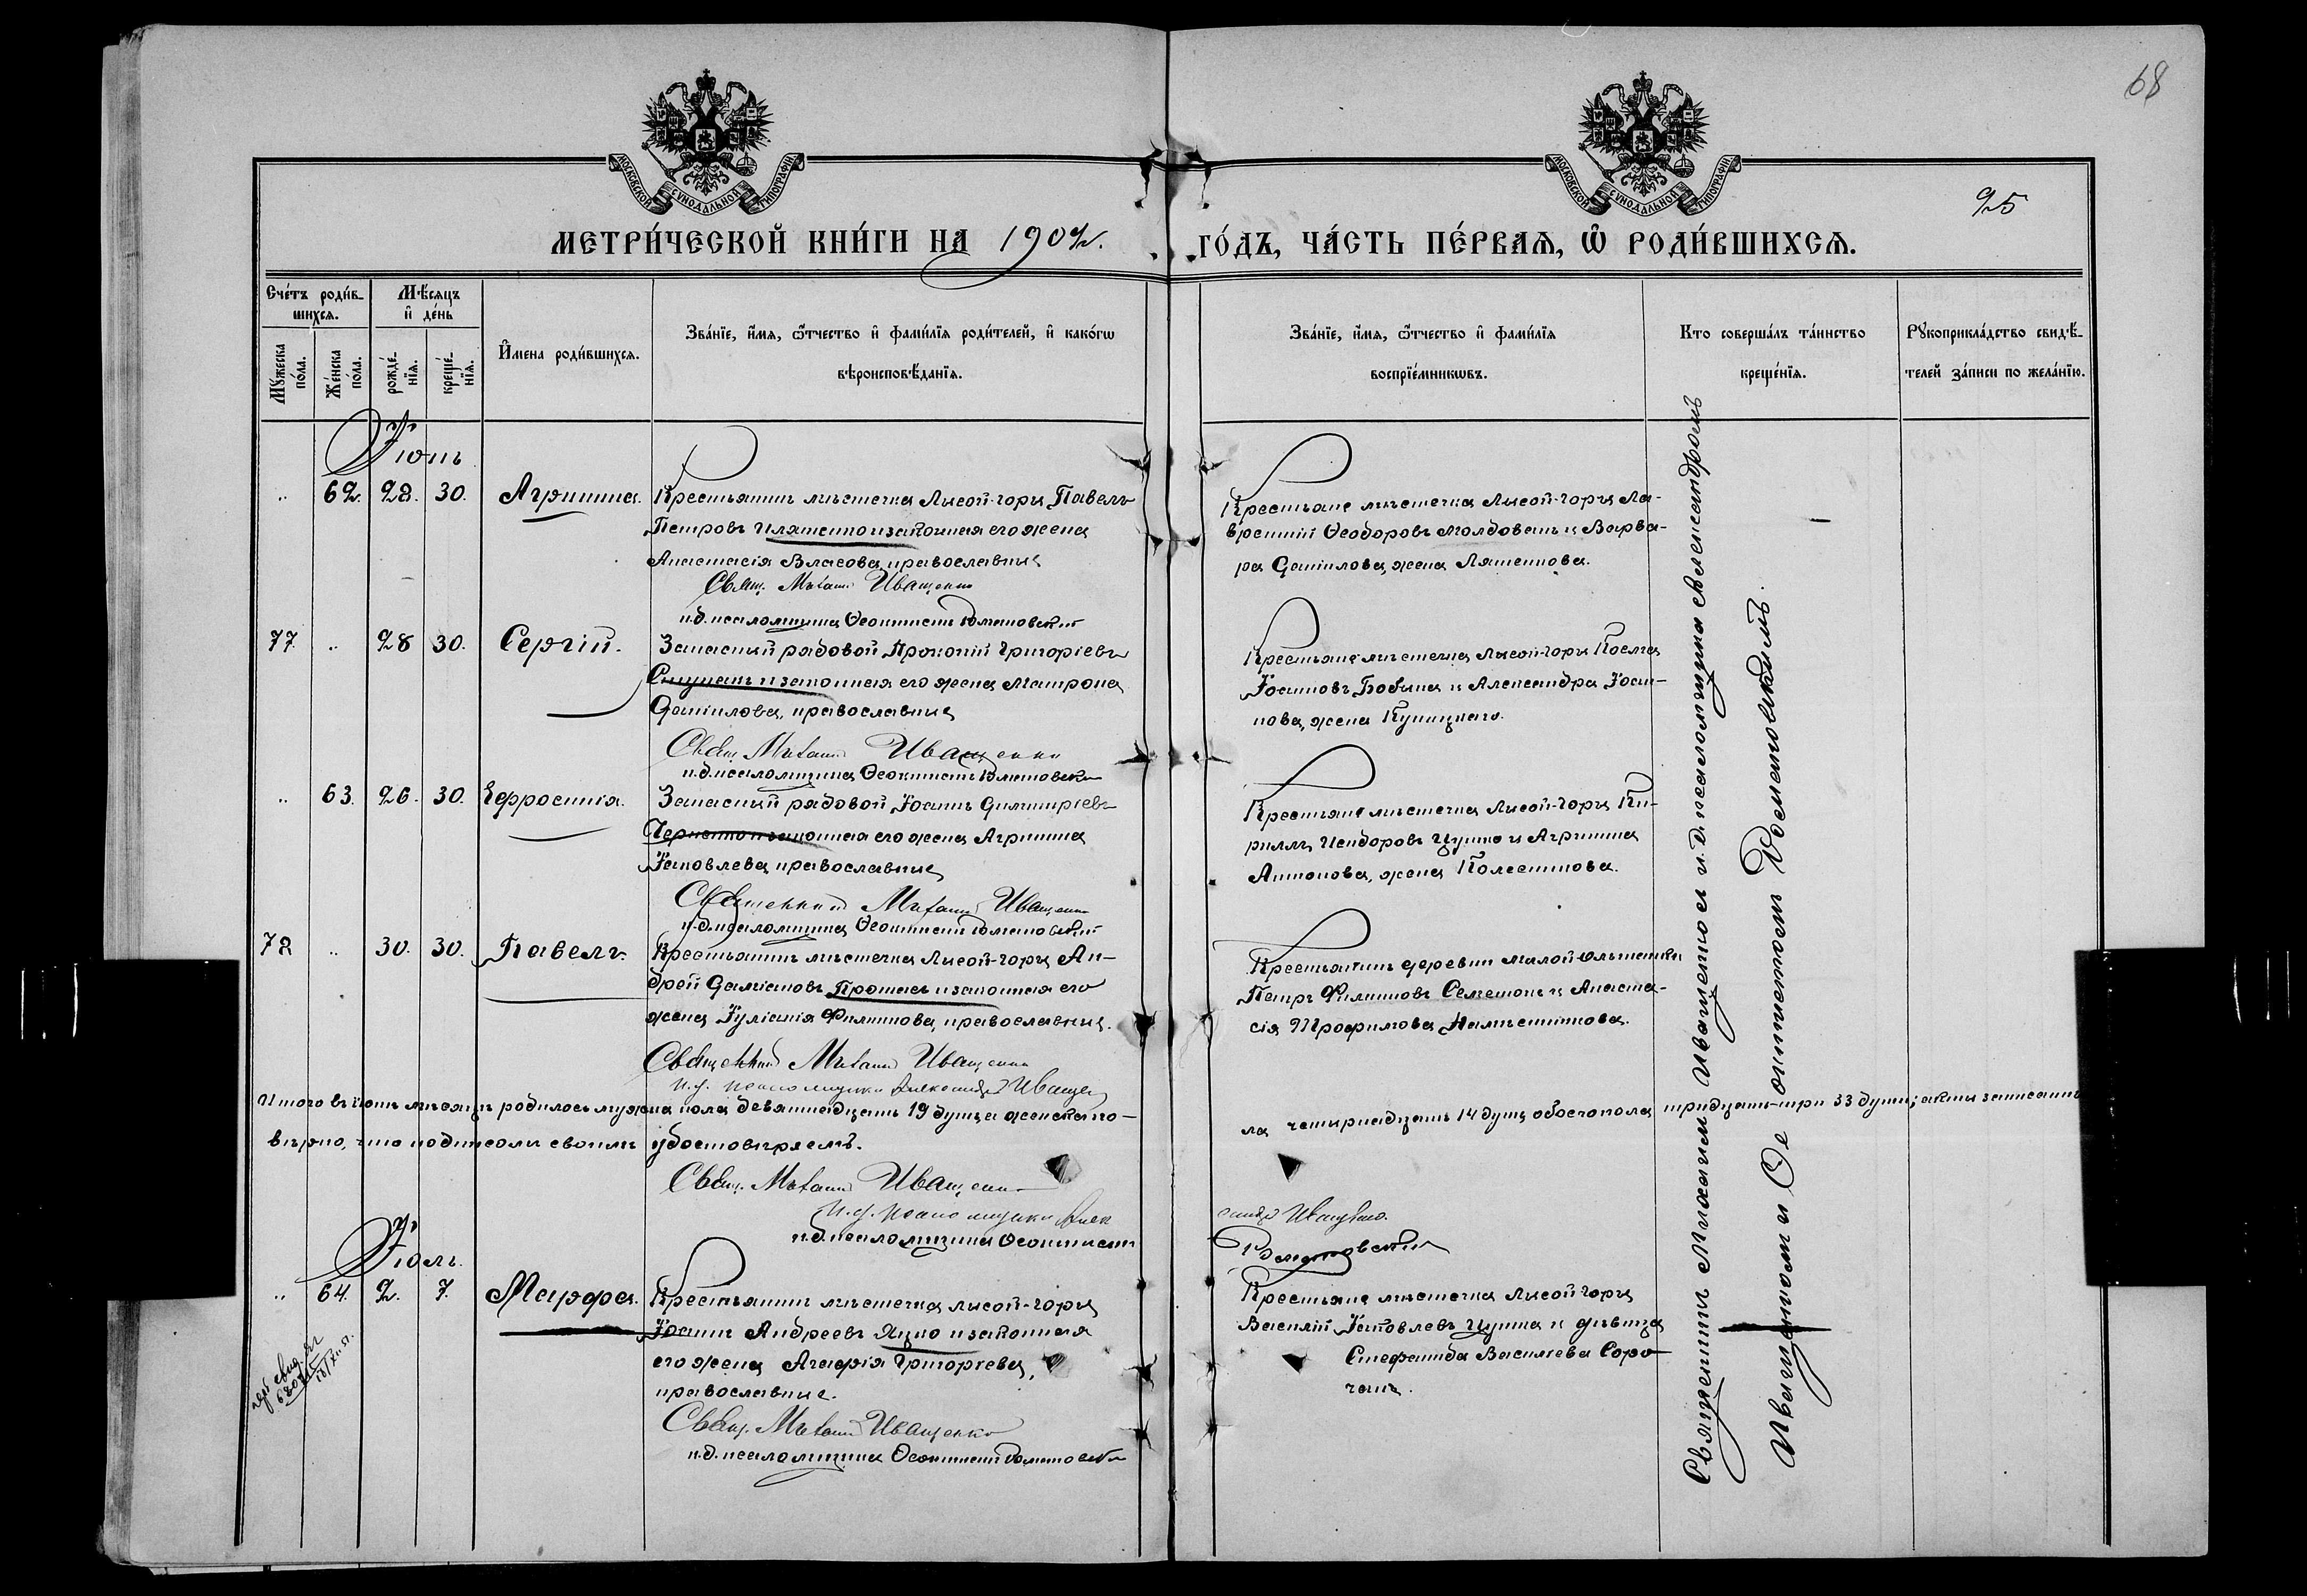 68
МОСКОВСКОЙ СѴНОДАЛЬНОЙ ТИПОГРАФІИ
МОСКОВСКОЙ СѴНОДАЛЬНОЙ ТИПОГРАФІИ
25
МЕТРИ́ЧЕСКОЙ КНИ́ГИ НА 1902 ГО́ДЪ, ЧА́СТЬ ПЕ́РВАЯ, Ѡ РОДИ́ВШИХСЯ.
Сче́тъ роди́в-
шихся.
Мꙋ́жеска по́ла.
Же́нска по́ла.
Мѣ́сяцъ и де́нь
рожде́-
нїя.
креще́-
нїя.
И҆мена роди́вшихся.
Зва́нїе, и҆́мя, ѻ҆́тчество и҆ фами́лїя роди́телей, и҆ како́гѡ
вѣроисповѣ́данїя.
Зва́нїе, и҆́мя, ѻ҆́тчество и҆ фами́лїя
воспрїе́мникѡвъ.
Кто соверша́лъ та́инство
креще́нїя.
Рꙋкоприкла́дство свидѣ́-
телей за́писи по жела́нїю.
Іюнь
62. 28. 30. Агриппина. Крестьянинъ мѣстечка Лысой-горы Павелъ
Петровъ Иляшенко и законная его жена
Анастасія Власова, православные
Свящ. Михаилъ Иващенко
и.д. псаломщика Ѳеоктистъ Романовскій
Крестьяне мѣстечка Лысой-горы Ла-
врентій Ѳеодоровъ Молдованъ и Варва-
ра Даніилова, жена Ляшенкова.
77. 28 30. Сергій. Запасный рядовой Прокопій Григоріевъ
и законная его жена Матрона
Даніилова, православные
Свящ. Михаилъ Иващенко
и.д. псаломщика Ѳеоктистъ Романовскій
Крестьяне мѣстечка Лысой-горы Косма
Іоанновъ Бобына и Александра Іоан-
нова, жена Куницкаго.
63. 26. 30. Евфросинія. Запасный рядовой Іоаннъ Димитріевъ
законная его жена Агриппина
Іаковлева, православные
Священникъ Михаилъ Иващенко
и.д. псаломщика Ѳеоктистъ Романовскій
Крестьяне мѣстечка Лысой-горы Ки-
риллъ Исидоровъ Цупко и Агриппина
Антонова, жена Колесникова.
78 30. 30. Павелъ. Крестьянинъ мѣстечка Лысой-горы Ан-
дрей Даміановъ и законная его
жена Іуліанія Филиппова, православные.
Священникъ Михаилъ Иващенко
и.д. псаломщика Александръ Иващен
Крестьянинъ деревни малой
Петръ Филипповъ Семешонъ и Анаста-
сія Трофимова Намѣстникова.
Итого въ іюнѣ мѣсяцѣ родилось мужска пола девятнадцать 19 душъ, а женска по-
ла четырнадцать 14 душъ, обоего пола тридцать-три 33 души; акты записаны
вѣрно, что подписомъ своимъ удостовѣряемъ.
Свящ. Михаилъ Иващенко
и.д. псаломщика Алек
сандръ Иващенко.
и.д. псаломщика Ѳеоктистъ
Романовскій
Іюль.
64. 2. 7. Марфа. Крестьянинъ мѣстечка Лысой-горы
Іоаннъ Андреевъ Яцко и законная
его жена Агафія Григорьева,
православные.
Свящ. Михаилъ Иващенко
и.д. псаломщика Ѳеоктистъ Романовскій
Крестьяне мѣстечка Лысой горы
Василій Іаковлевъ Цупка и дѣвица
Стефанида Василіева Соро-
чанъ.
Священникъ Михаилъ Иващенко съ и.д. псаломщика Александромъ
Иващенкомъ и Ѳеоктистомъ Романовскимъ.